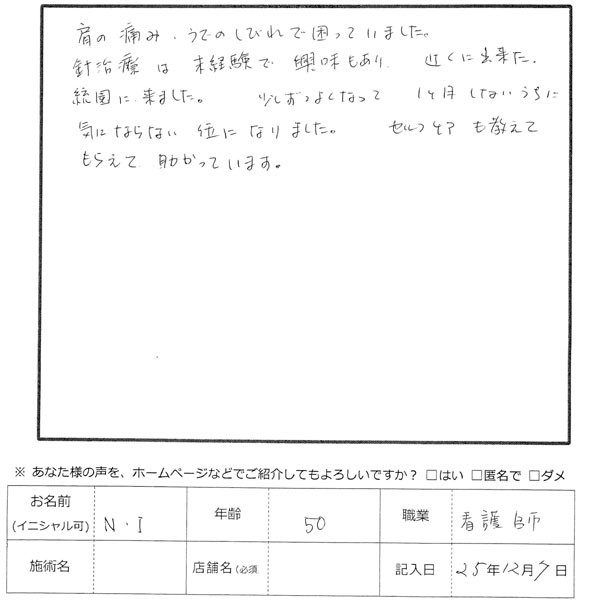 肩の痛み、うでのしびれで困っていました。
針治療は 未経験で 興味もあり、 近くに出来た
統園に来ました。 少しずつよくなって 1ヶ月しないうちに
気にならない 位に なりました。 セルフケア も教えて
もらえて 助かっています。
※ あなた様の声を、ホームページなどでご紹介してもよろしいですか？ □はい □匿名で □ダメ
お名前 (イニシャル可) N・I 年齢 50 職業 看護師
施術名 店舗名（必須 記入日 25年12月9日